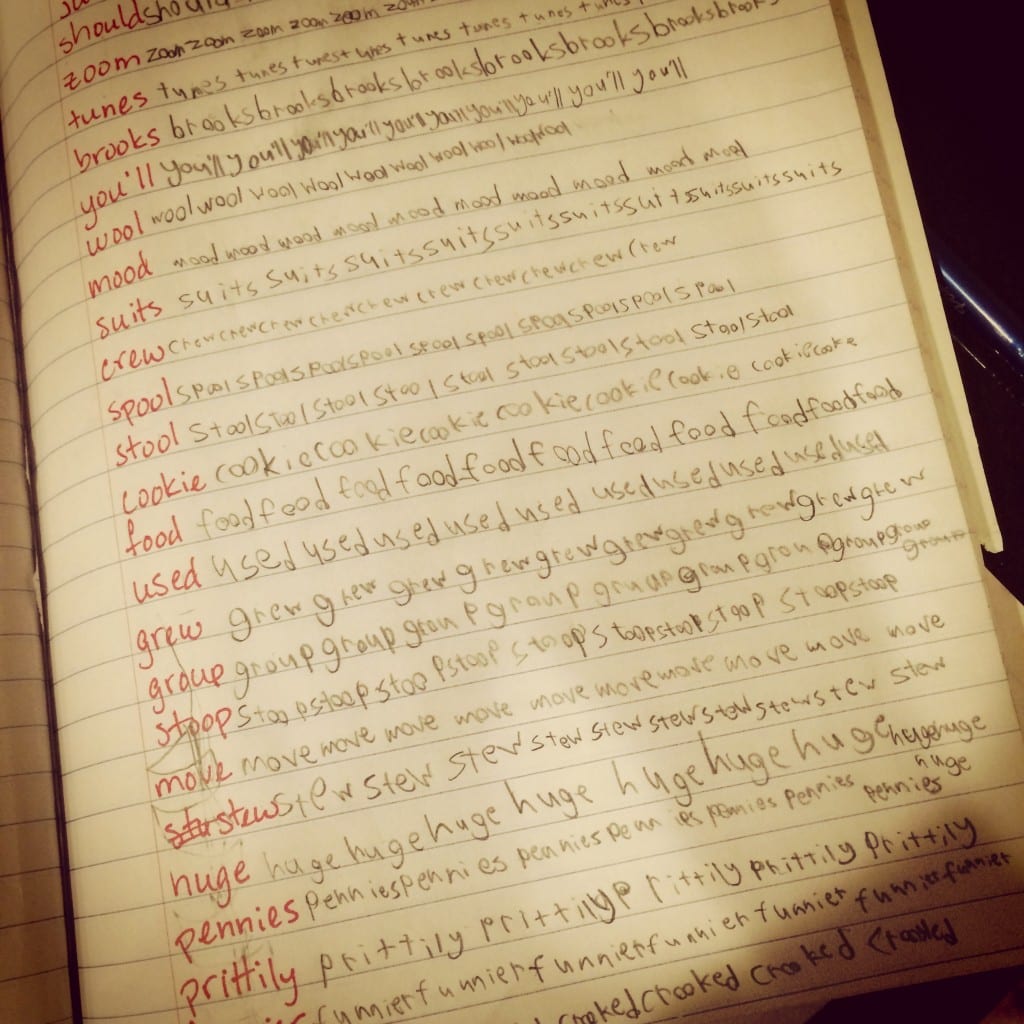 shouldshould
zoom zoomzoom zoom zoom zoom
tunes tunes tunestunestunes tunes tunes tunes tunes
brooks brooksbrooksbrooksbrooksbrooksbrooksbrooks
you'll you'llyou'llyou'llyou'llyou'llyou'llyou'llyou'll you'll
wool woolwool wool wool wool wool wool wool woolwool
mood moodmood mood mood mood mood mood mood mood
suits suits suits suits suits suitssuitssuitssuitssuitssuits
crew crewcrewcrewcrewcrew crew crewcrewcrew crew
spool spoolspoolspoolspool spool spool spoolspoolspool
stool stoolstoolstoolstool stool stoolstoolstool stoolstool
cookie cookiecookiecookie cookiecookiecookie cookiecooke
food foodfood foodfoodfoodfoodfoodfood foodfoodfood
used used usedused used used usedusedusedusedused
grew grewgrew grew grewgrewgrewgrewgrewgrewgrew
group groupgroupgroupgroup gruupgroupgroupgroupgroup
group
stoop stoopstoopstoopstoop stoop stoopstoopstoop stoopstoop
move movemove move move move movemove move move move
stew stew stew stew stew stewstewstewstewstew stew
huge hugehugehuge huge hugehuge hugehugehuge
huge
pennies penniespennies penniespennies pennies pennies
pennies
prittily prittily prittily prittily prittily prittily
funnierfunnierfunnierfunnierfunnier funnierfunnier
crookedcrooked crooked crooked